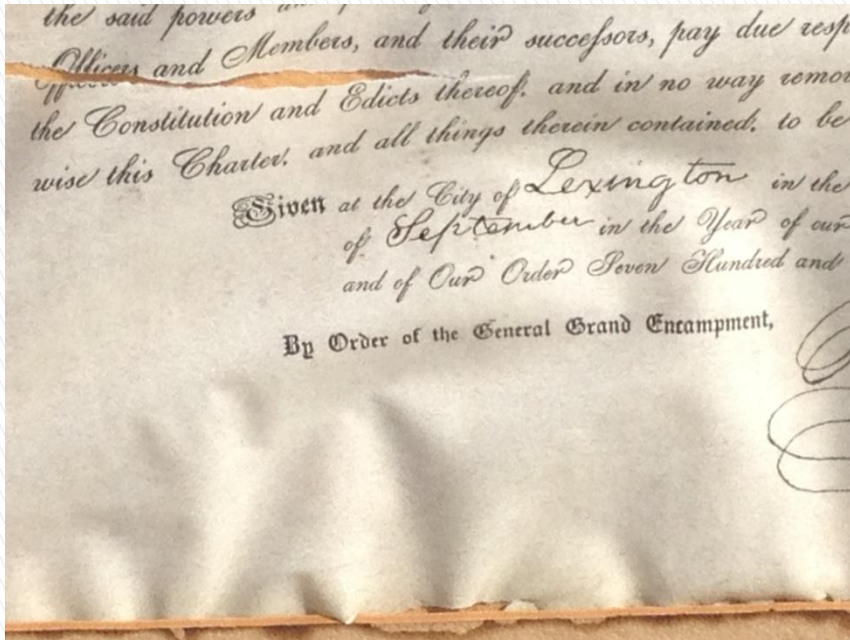 the said powers
Officers and Members, and their succeſsors, pay due resp
the Constitution and Edicts thereof, and in no way remov
wise this Charter, and all things therein contained, to be
Given at the City of Lexington in the
of September in the Year of our
and of Our Order Seven Hundred and
By Order of the General Grand Encampment,